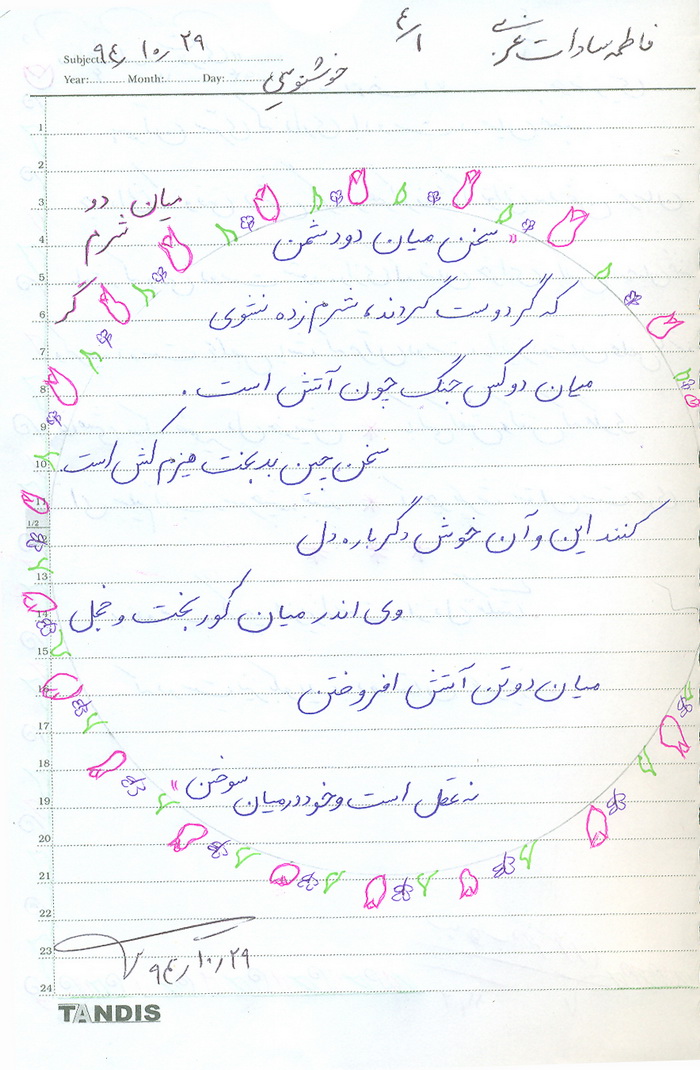 فاطمه سادات
۴/۱
Subject: ۹۴/۱۰/۲۹
Year: Month: Day:
خوشنویسی
میان دو
شرم
گر
«سخن میان دو دشمن
که گر دوست گردند، شرم زده نشوی
میان دو کس جنگ چون آتش است.
سخن چین بدبخت هیزم کش است
کنند این و آن خوش دگر باره دل
وی اندر میان کوربخت و خجل
میان دو تن آتش افروختن
نه عقل است و خود در میان سوختن»
۹۴/۱۰/۲۹
1
2
3
4
5
6
7
8
9
10
11
1/2
12
13
14
15
16
17
18
19
20
21
22
23
24
TANDIS